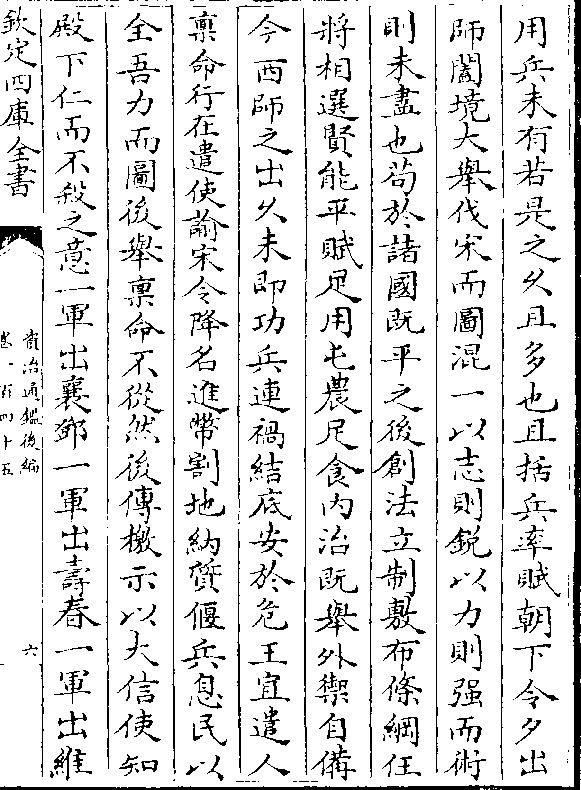 用兵未有若是之久且多也且括兵率賦朝下令夕出
師闔境大舉伐宋而圖混一以志則鋭以力則强而術
則未盡也茍於諸國既平之後創法立制敷布條綱任
將相選賢能平賦足用屯農足食内治既舉外禦自備
今西師之出久未即功兵連禍結底安於危王宜遣人
禀命行在遣使諭宋令降名進幣割地納質偃兵息民以
全吾力而圖後舉禀命不從然後傳檄示以大信使知
殿下仁而不殺之意一軍出襄鄧一軍出壽春一軍出維
欽定四庫全書
資治通鑑後編
卷一百四十五
六